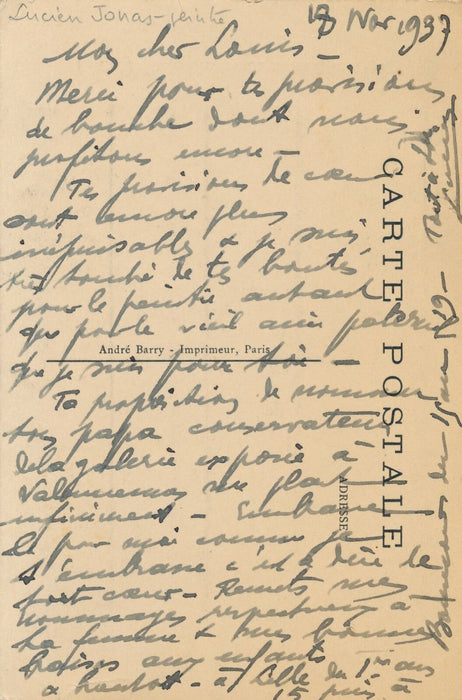 Lucien Jonas - peintre
18 Nov 1937
Mon cher Louis -
Merci pour tes provisions
de bouche dont nous
profitons encore -
Tes provisions de cœur
sont encore plus
inépuisables & je suis
très touché de tes bontés
pour le peintre autant
que pour le vieil ami
que je suis pour toi -
Ta proposition de nommer
ton papa conservateur
de la galerie exposée à
Valenciennes me plaît
infiniment - Embrasse
le pour moi comme je
t'embrasse c'est à dire de
tout cœur - Remets mes
hommages respectueux à
ta femme & mes bonnes
baises aux enfants
& bientôt - à Lille du 1er au
15
CARTE POSTALE
ADRESSE
André Barry - Imprimeur, Paris
du 15 au 19 -